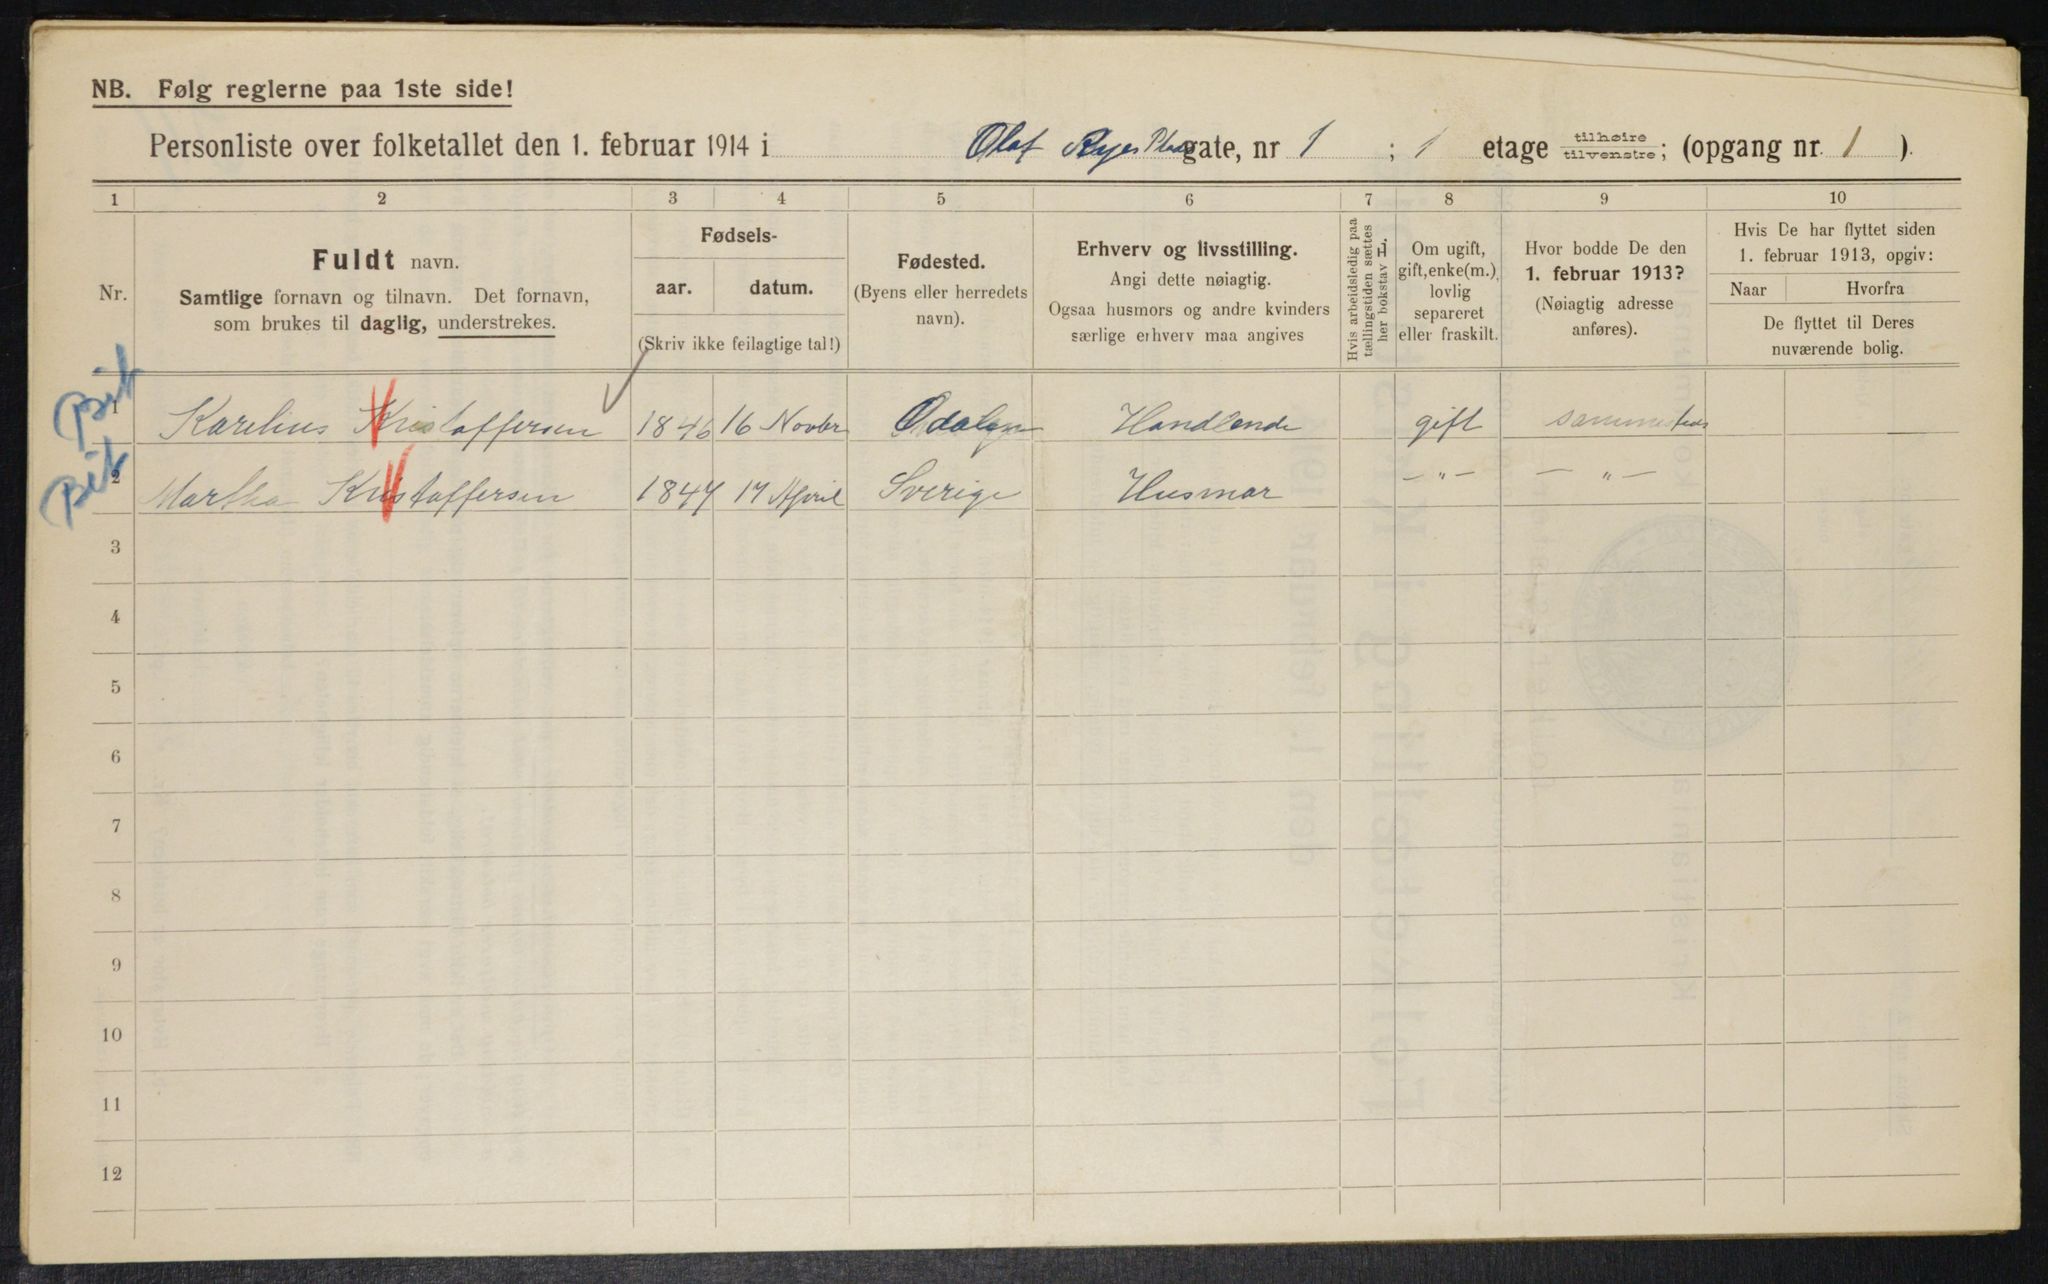 NB. Følg reglerne paa 1ste side!
Personliste over folketallet den 1. februar 1914 i Olaf Ryes Plads gate, nr 1 ; 1 etage tilhøire tilvenstre; (opgang nr. 1 ).
1 2 3 4 5 6 7 8 9 10
Nr.
Fuldt navn.
Samtlige fornavn og tilnavn. Det fornavn,
som brukes til daglig, understrekes.
Fødsels-
aar. datum.
(Skriv ikke feilagtige tal!)
Fødested.
(Byens eller herredets
navn).
Erhverv og livsstilling.
Angi dette nøiagtig.
Ogsaa husmors og andre kvinders
særlige erhverv maa angives
Hvis arbeidsledig paa
tællingstiden sættes
her bokstav L.
Om ugift,
gift, enke(m.),
lovlig
separeret
eller fraskilt.
Hvor bodde De den
1. februar 1913?
(Nøiagtig adresse
anføres).
Hvis De har flyttet siden
1. februar 1913, opgiv:
Naar Hvorfra
De flyttet til Deres
nuværende bolig.
Bik
1 Karelius Kristoffersen 1846 16 Novbr Odalen Handlende gift sammesteds
Bik
2 Martha Kristoffersen 1847 17 April Sverige Husmor — " — — " —
3
4
5
6
7
8
9
10
11
12